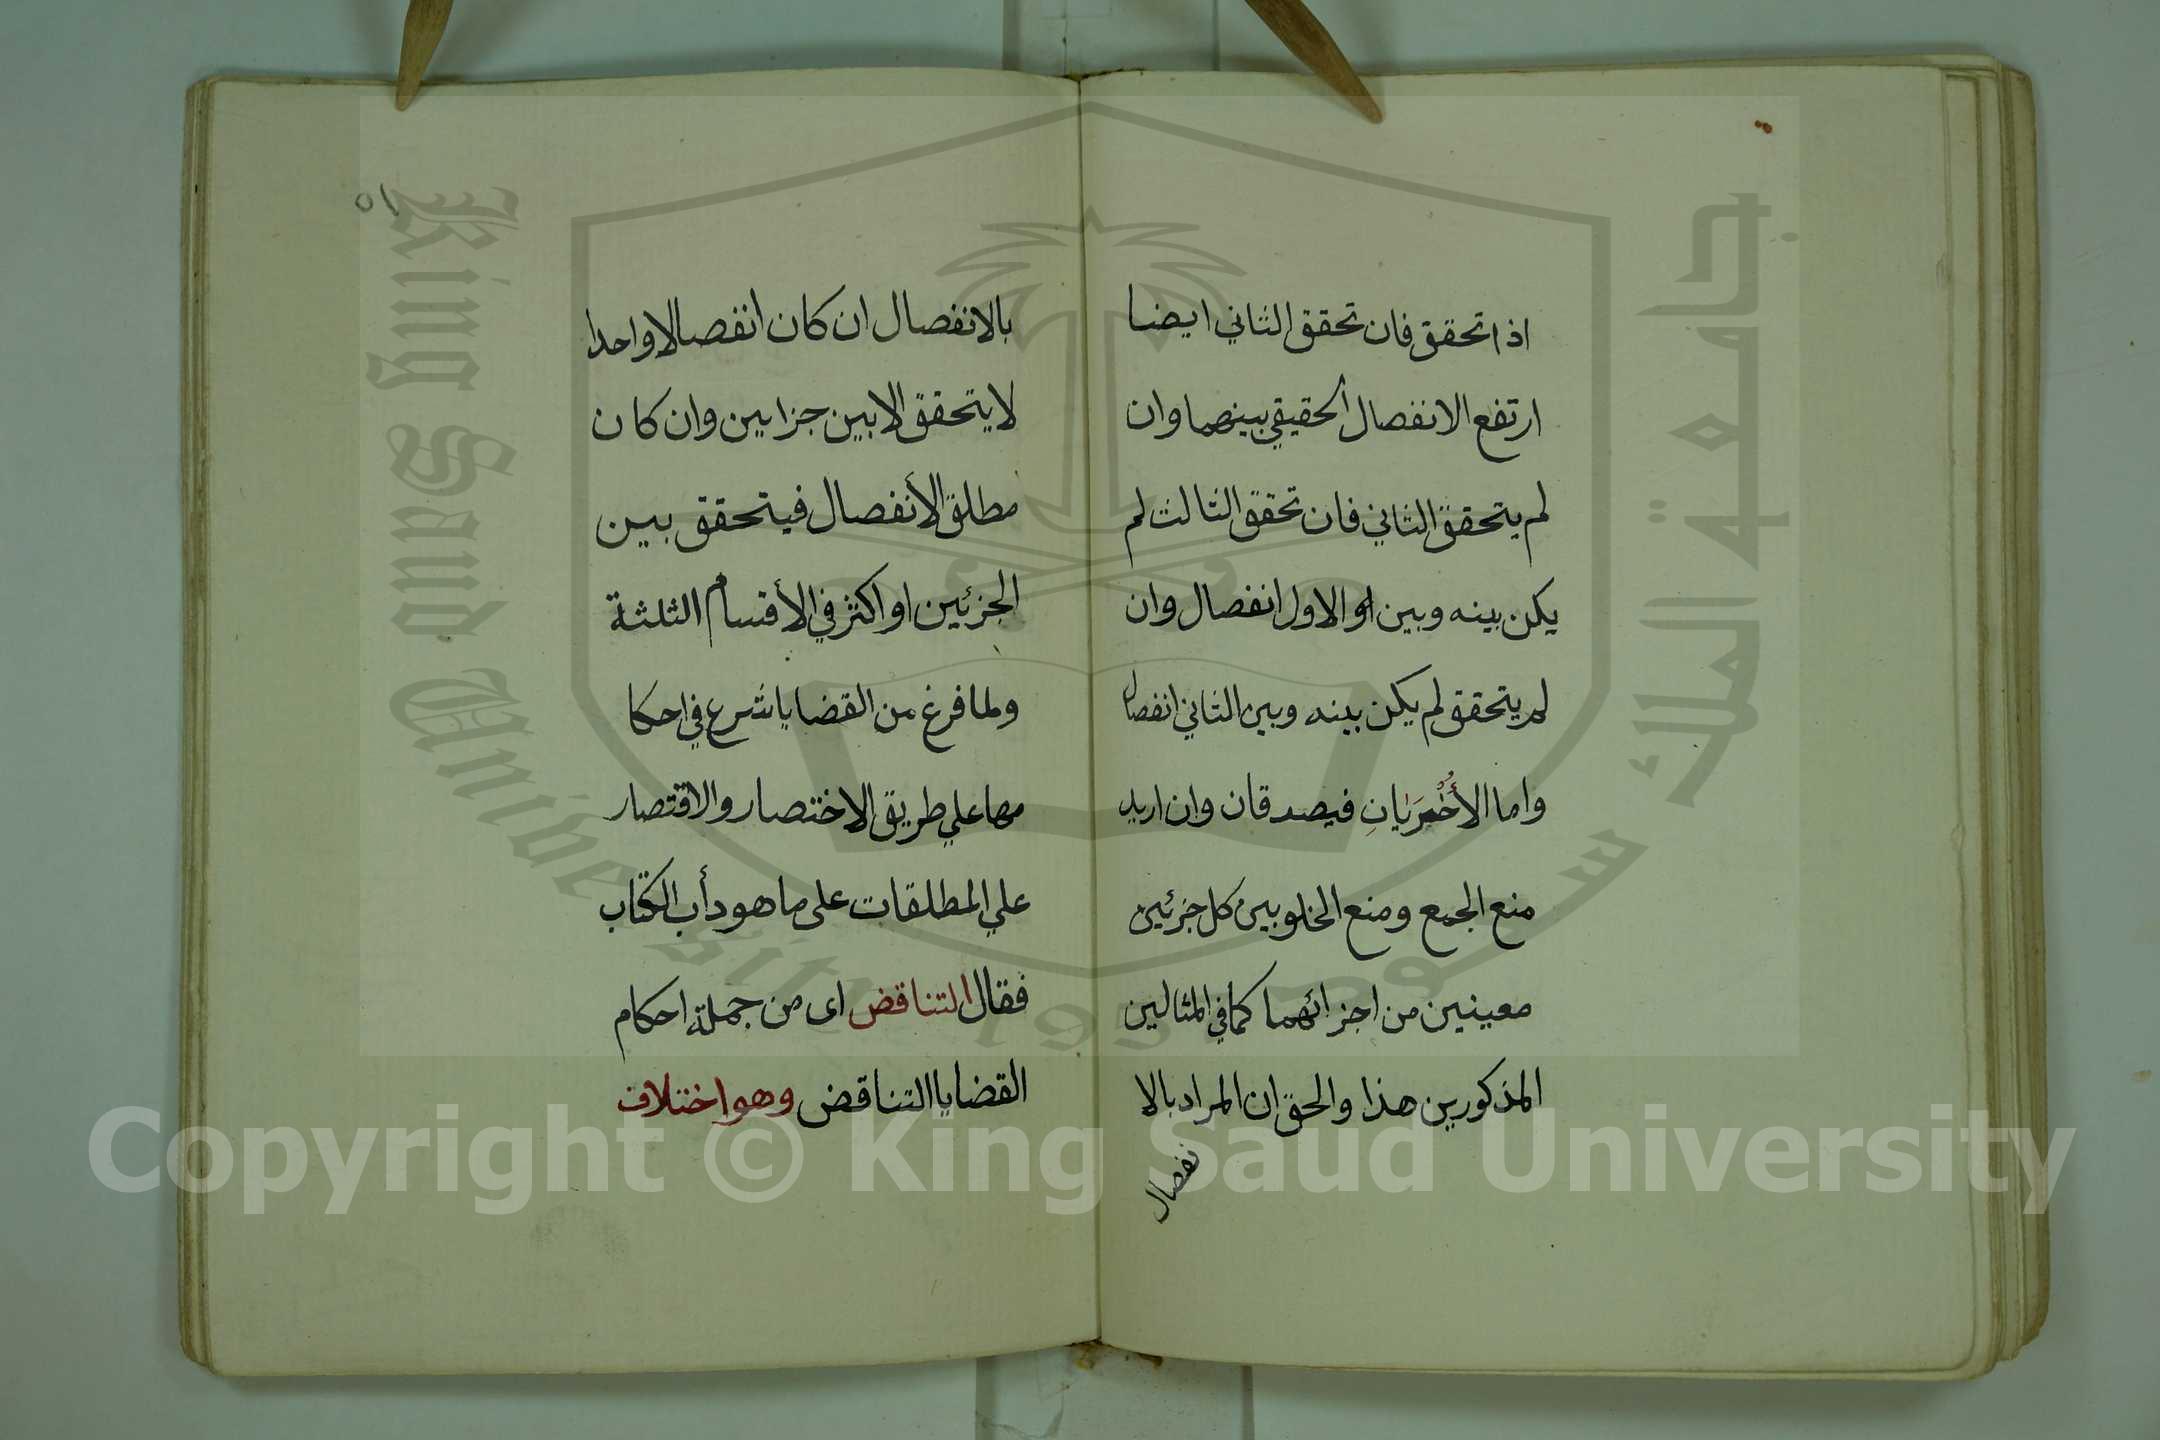 اذا تحقق فان تحقق الثاني ايضا
ارتفع الانفصال الحقيقي بينهما وان
لم يتحقق الثاني فان تحقق الثالث لم
يكن بينه وبين الاول انفصال وان
لم يتحقق لم يكن بينه وبين الثاني انفصال
واما الأخريان فيصدقان وان اريد
منع الجمع ومنع الخلو بين كل جزئين
معينين من اجزائهما كما في المثالين
المذكورين هذا والحق ان المراد بالا
نفصال
٥١
بالانفصال ان كان انفصالا واحدا
لا يتحقق الا بين جزايين وان كان
مطلق الأنفصال فيتحقق بين
الجزئين او اكثر في الأقسام الثلثة
ولما فرغ من القضايا شرع في احكا
مها علي طريق الاختصار والاقتصار
علي المطلقات على ما هو دأب الكتاب
فقال التناقض اى من جملة احكام
القضايا التناقض وهو اختلاف
جامعة الملك سعود
King Saud University
1957
Copyright © King Saud University